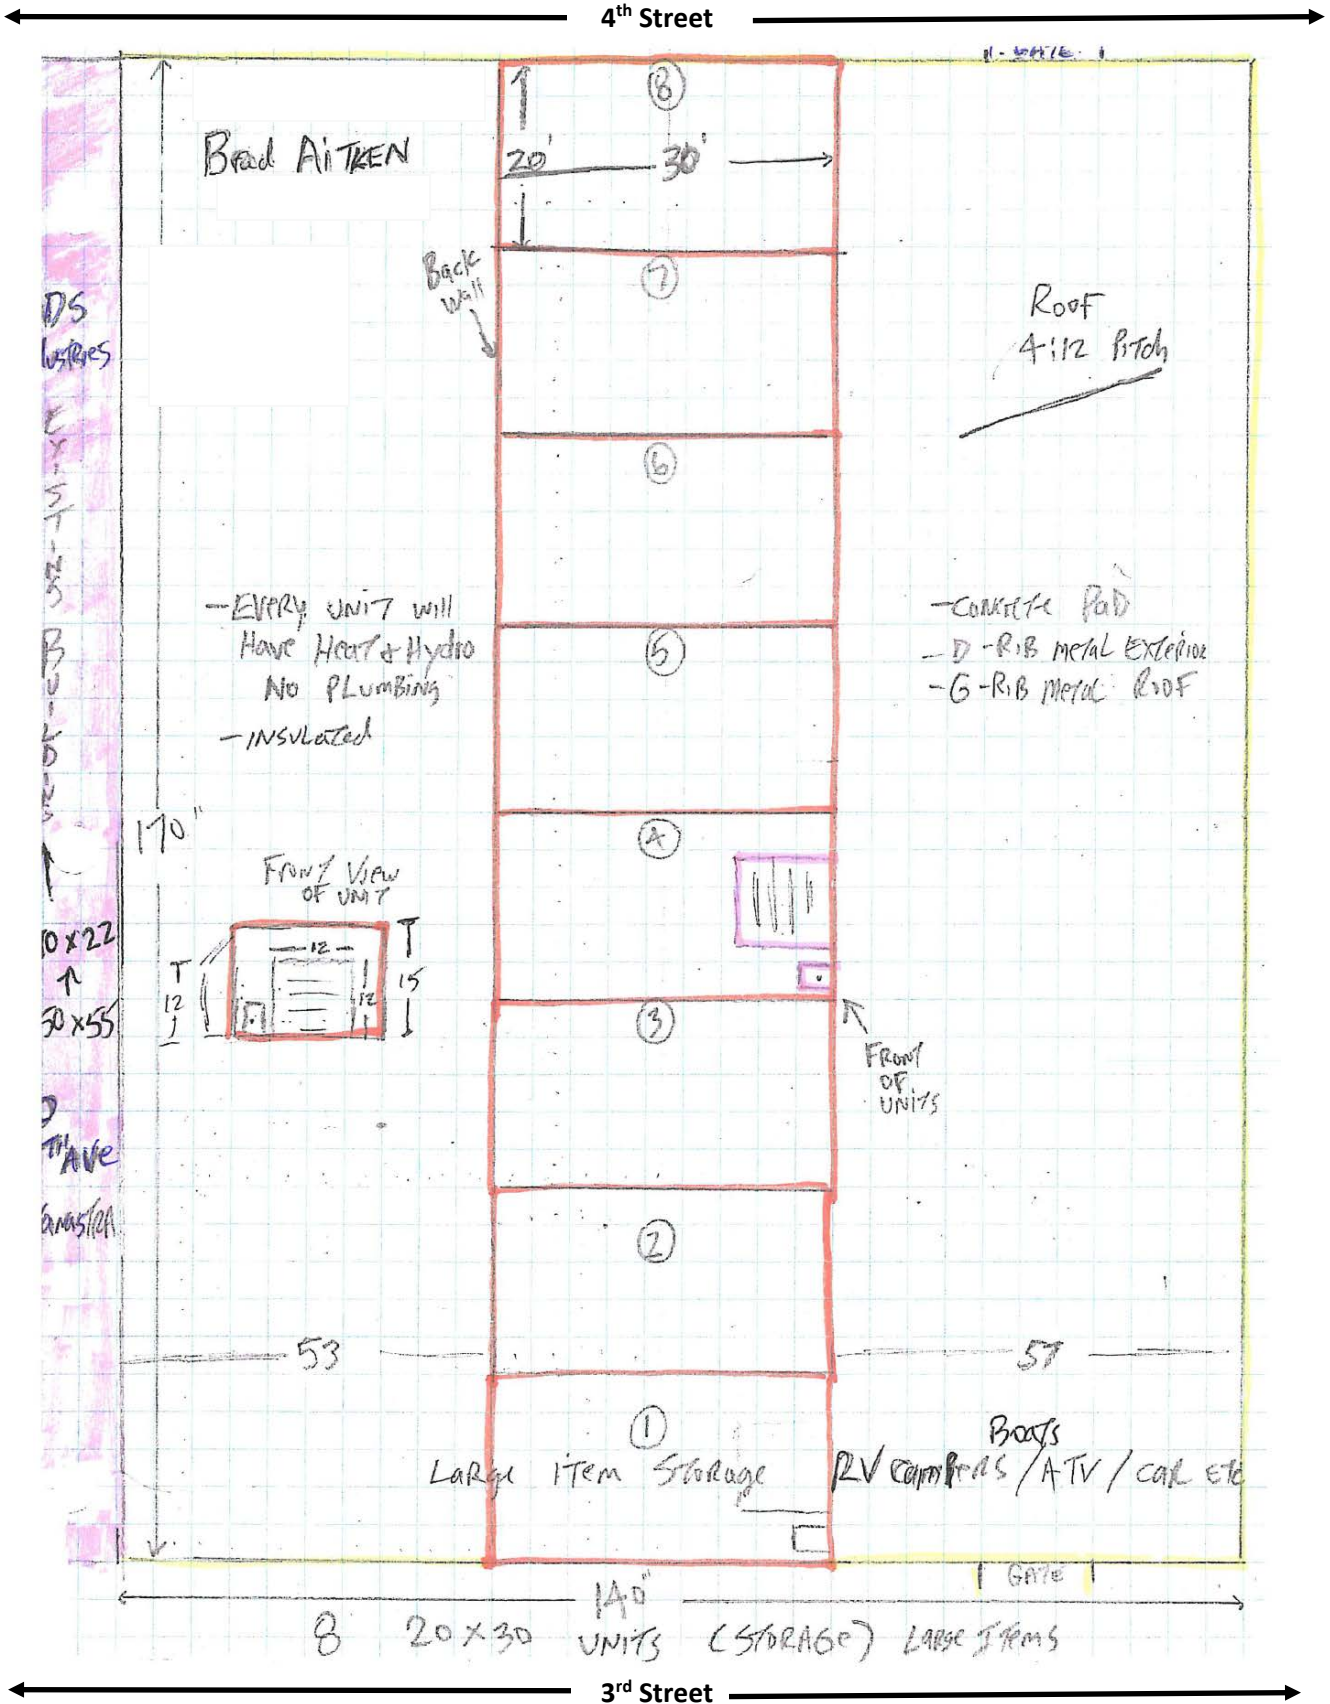 4th Street
GATE
8
Brad AiTKEN
20' 30'
Back
Wall
7
DS
ustries
Roof
4:12 PiTch
6
EXISTING BUILDING
-EVERY UNIT will
Have Heat & Hydro
No PLumbing
-INSULated
5
-CONCReTe PaD
-D-RiB metal EXTerior
-G-RiB metal ROOF
170"
4
FronT View
OF UNiT
12
12
12
15
0 x 22
50 x 55
3
FRonT
OF
UNiTS
TH AVe
2
53
57
1
LaRge iTem STorage
Boats
RV campers / ATV / caR eTc
GATE
140"
8 20 x 30 UNiTS (STORAGe) LaRge ITems
3rd Street